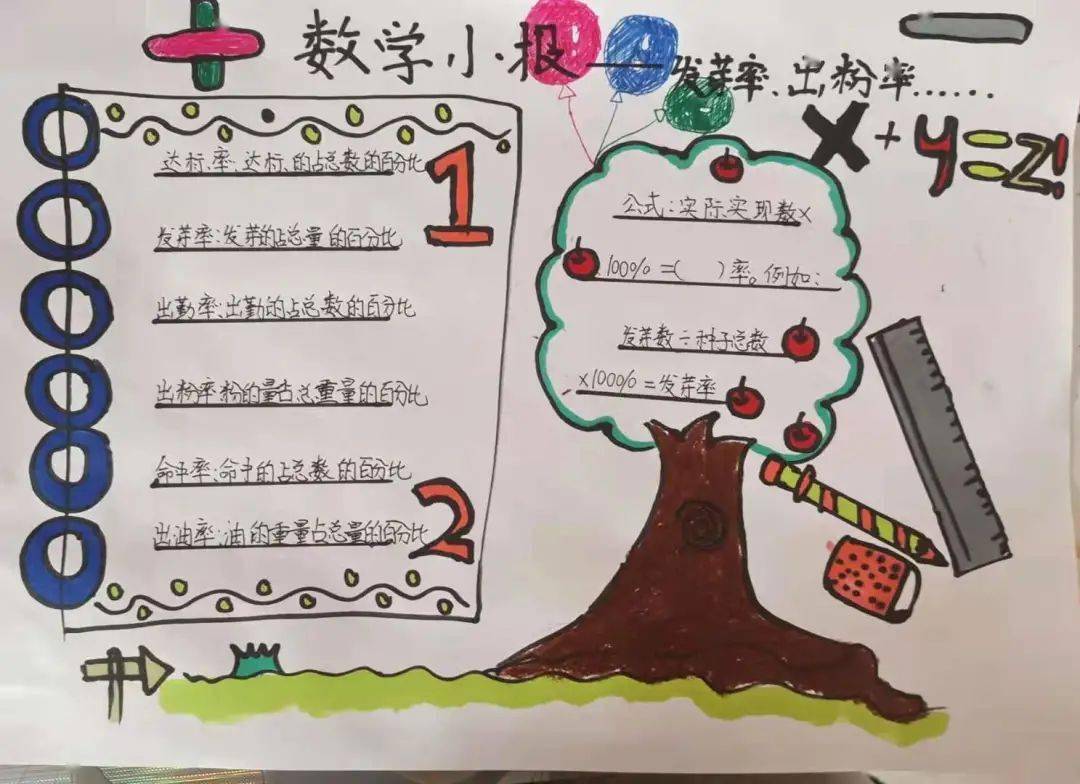 数学小报——发芽率、出粉率……
x+y=z!
1
达标率:达标的占总数的百分比
发芽率:发芽的占总量的百分比
出勤率:出勤的占总数的百分比
出粉率:粉的量占总重量的百分比
命中率:命中的占总数的百分比
2
出油率:油的重量占总量的百分比
公式:实际实现数×
100%=( )率。例如:
发芽数÷种子总数
×100%=发芽率